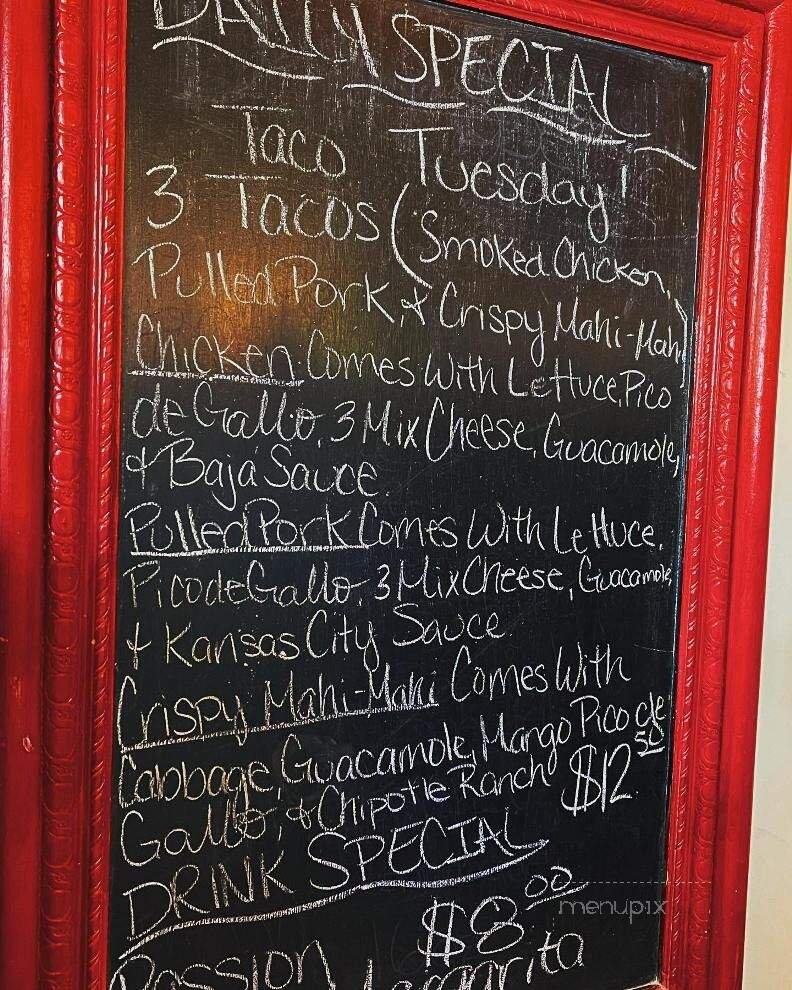 DAILY SPECIAL
Taco Tuesday!
3 Tacos (Smoked Chicken,
Pulled Pork, & Crispy Mahi-Mahi)
Chicken Comes With Lettuce, Pico
de Gallo, 3 Mix Cheese, Guacamole,
& Baja Sauce.
Pulled Pork Comes With Lettuce,
Pico de Gallo, 3 Mix Cheese, Guacamole,
& Kansas City Sauce
Crispy Mahi-Mahi Comes With
Cabbage, Guacamole, Mango Pico de
Gallo, & Chipotle Ranch $12.50
DRINK SPECIAL
$8.00
menupix
Passion Margarita